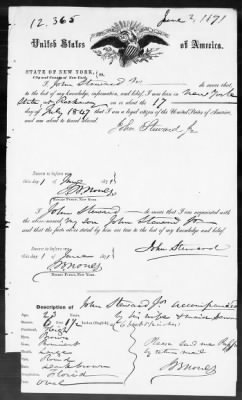 12.365
June 2, 1871
United States of America.
STATE OF NEW YORK, } ss.
City and County of New York,
I John Steward Jr do swear that,
to the best of my knowledge, information, and belief, I was born in New York
State, at Rockaway on or about the 17
day of July 1847 that I am a loyal citizen of the United States of America,
and am about to travel abroad.
John Steward Jr
Sworn to before me
this day 1 of June 1871
B Nones
NOTARY PUBLIC, NEW YORK.
I John Steward do swear that I am acquainted with the
above-named My son John Steward Jr
and that the facts above stated by him are true to the best of my knowledge and belief.
John Steward
Sworn to before me
this day 1 of June 1871
B Nones
NOTARY PUBLIC, NEW YORK.
Description of John Steward Jr accompanied
by his wife & maid
Age, 23
Stature, 6
High
Brown
Large
Round
Dark brown
Florid
Oval
Please send me
by return mail
B Nones